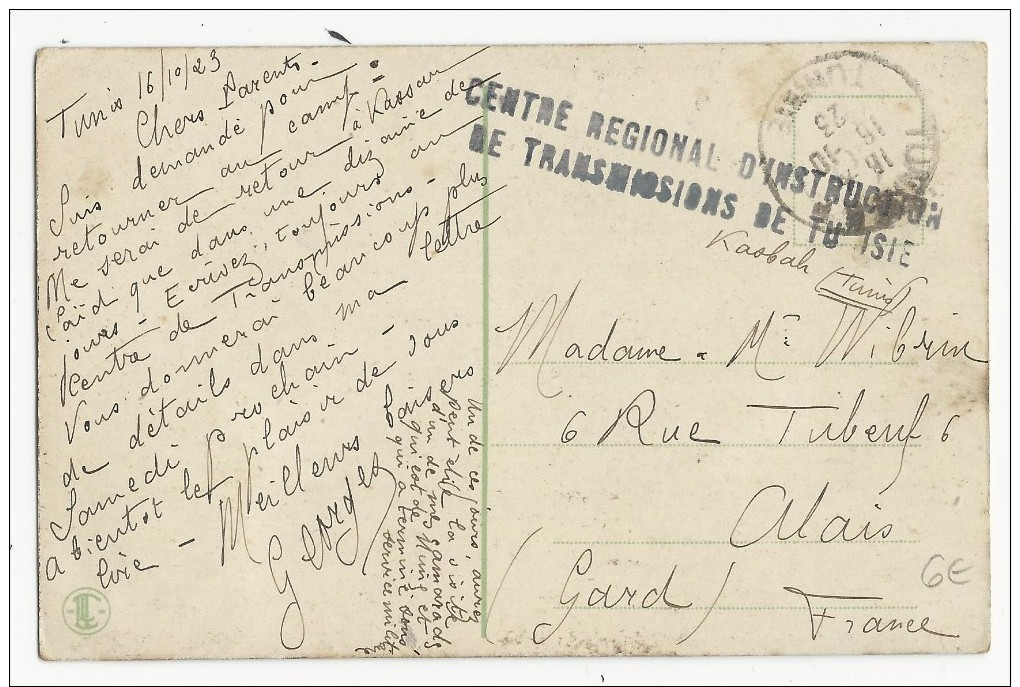 Tunis 16/10/23
Chers Parents -
Suis demandé pour
retourner au camp
Me serai de retour à Kassar
Saïd que dans une dizaine de
jours - Ecrivez, toujours au
Centre de Transmissions -
Vous donnerai beaucoup plus
de détails dans ma lettre
Samedi prochain -
A bientôt le plaisir de vous
lire - Meilleurs
Baisers
Georges
Un de ces jours, aurez
peut être la visite
d'un de mes camarads
qui est de Nîmes et
qui a terminé son
service milit
CENTRE REGIONAL D'INSTRUCTION
DE TRANSMISSIONS DE TU ISIE
TUNIS
TUNISIE
16
10
23
Kasbah (Tunis)
Madame & Mr Wibrin
6 Rue Tubeuf 6
Alais
(Gard) France
6E